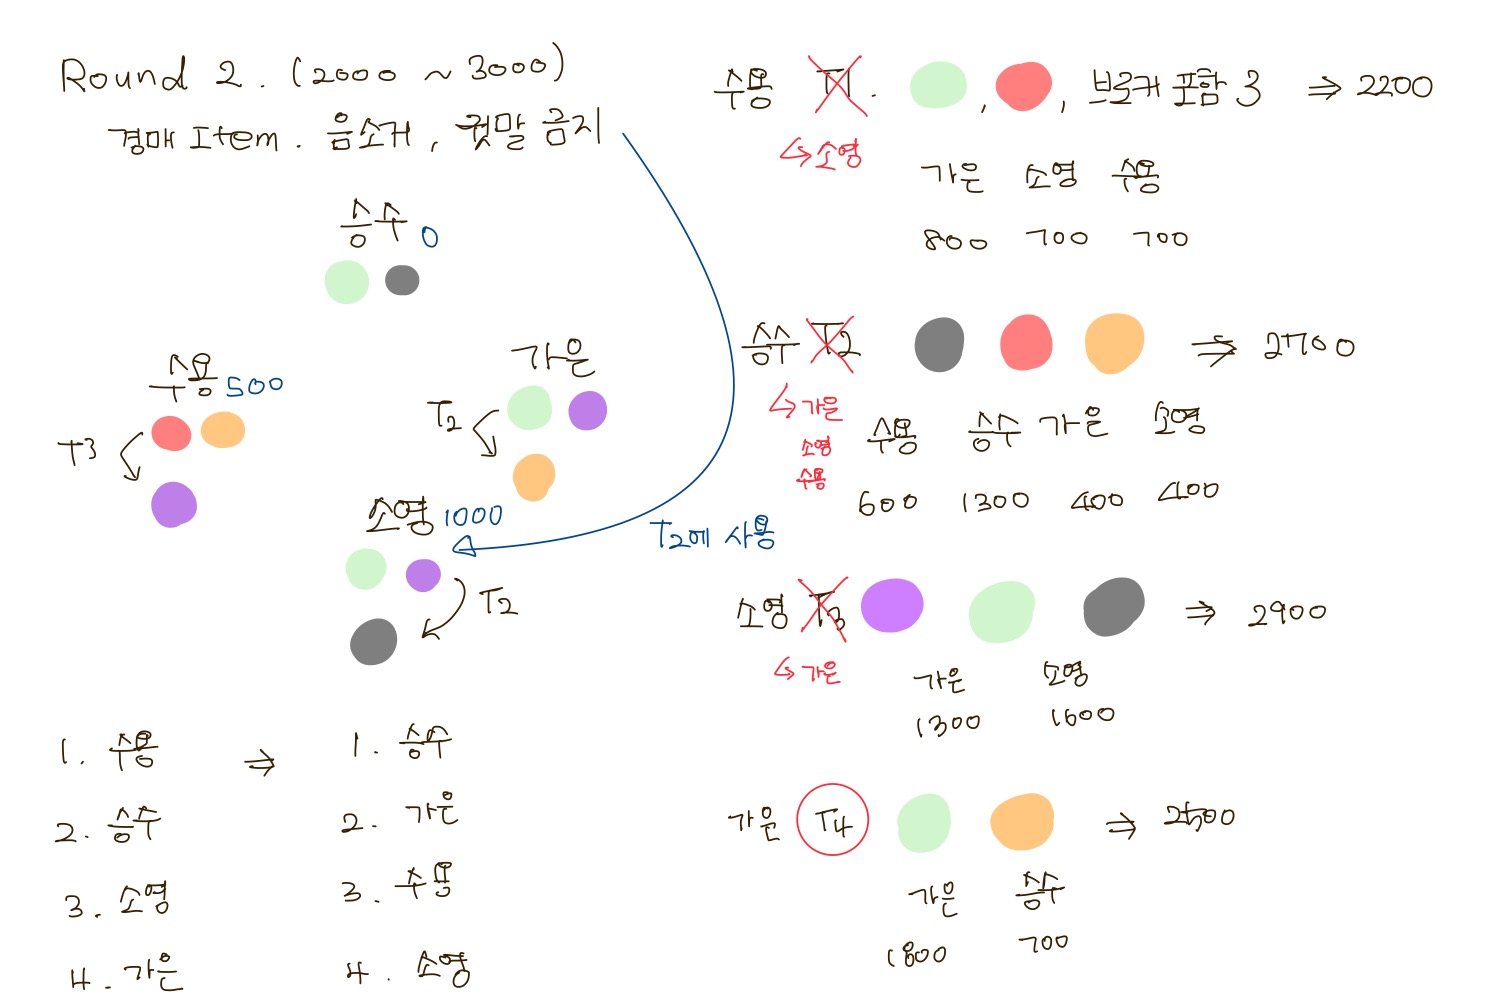 Round 2. (2000 ~ 3000)
경매 Item. 음소거, 귓말 금지
승수 0
수용 500
T3
가은
T2
소영 1000
T2
T2에 사용
1. 수용 ⇒ 1. 승수
2. 승수 2. 가은
3. 소영 3. 수용
4. 가은 4. 소영
수용 T1. , , 브로커 포함 3 ⇒ 2200
↳ 소영
가은 소영 수용
800 700 700
승수 T2 ⇒ 2700
↳ 가은
소영
수용
수용 승수 가은 소영
600 1300 400 400
소영 T3 ⇒ 2900
↳ 가은
가은 소영
1300 1600
가은 T4 ⇒ 2500
가은 승수
1800 700